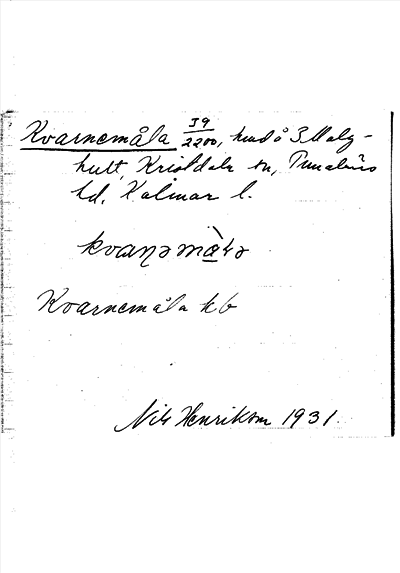 Kvarnemåla 39/2200, hmd å 3 Maly-
hult, Kristdala sn, Tunaläns
hd, Kalmar l.
Kvarnemåla kb
Nils Henrikson 1931.